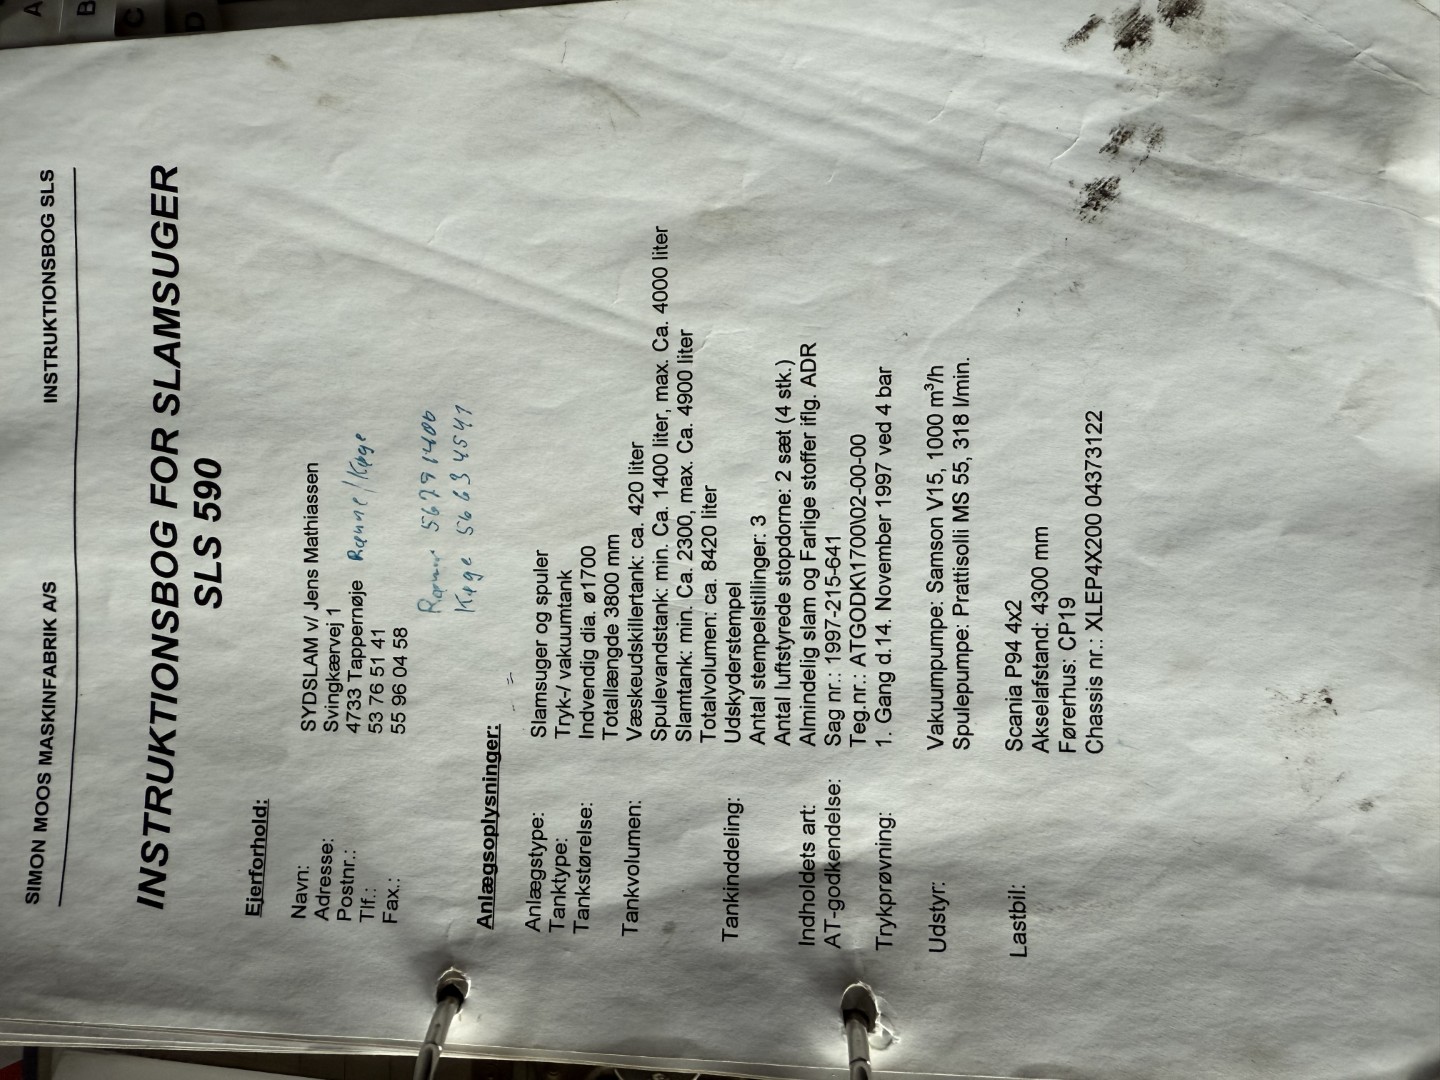 A
B
C
D
SIMON MOOS MASKINFABRIK A/S INSTRUKTIONSBOG SLS
INSTRUKTIONSBOG FOR SLAMSUGER
SLS 590
Ejerforhold:
Navn: SYDSLAM v/ Jens Mathiassen
Adresse: Svingkærvej 1
Postnr.: 4733 Tappernøje Rønne/Køge
Tlf.: 53 76 51 41
Fax.: 55 96 04 58
5679 1400
Køge 5663 4541
Anlægsoplysninger:
Anlægstype: Slamsuger og spuler
Tanktype: Tryk-/ vakuumtank
Tankstørelse: Indvendig dia. ø1700
Totallængde 3800 mm
Tankvolumen: Væskeudskillertank: ca. 420 liter
Spulevandstank: min. Ca. 1400 liter, max. Ca. 4000 liter
Slamtank: min. Ca. 2300, max. Ca. 4900 liter
Totalvolumen: ca. 8420 liter
Tankinddeling: Udskyderstempel
Antal stempelstillinger: 3
Antal luftstyrede stopdorne: 2 sæt (4 stk.)
Indholdets art: Almindelig slam og Farlige stoffer iflg. ADR
AT-godkendelse: Sag nr.: 1997-215-641
Teg.nr.: ATGODK\1700\02-00-00
Trykprøvning: 1. Gang d.14. November 1997 ved 4 bar
Udstyr: Vakuumpumpe: Samson V15, 1000 m³/h
Spulepumpe: Prattisolli MS 55, 318 l/min.
Lastbil: Scania P94 4x2
Akselafstand: 4300 mm
Førerhus: CP19
Chassis nr.: XLEP4X200 04373122